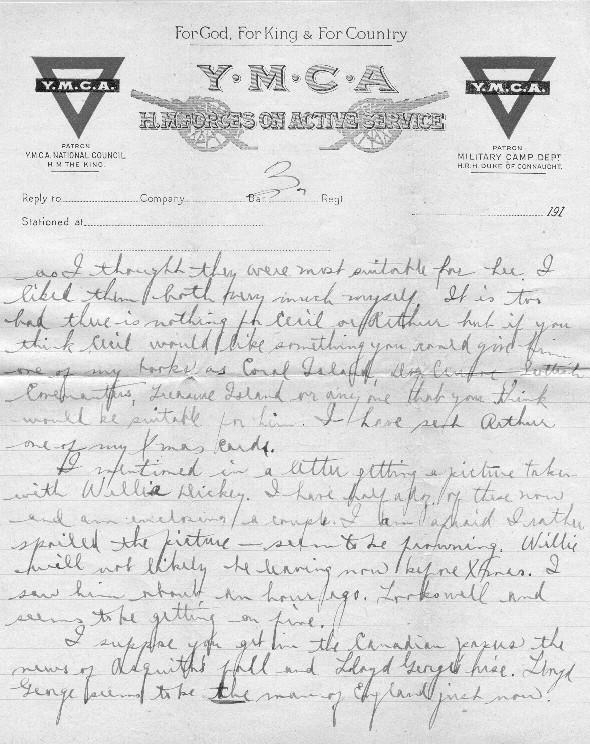 For God, For King & For Country
Y·M·C·A
H.M. FORCES ON ACTIVE SERVICE
Y.M.C.A.
PATRON
Y.M.C.A. NATIONAL COUNCIL
H.M. THE KING.
Y.M.C.A.
PATRON
MILITARY CAMP DEPT
H.R.H. DUKE OF CONNAUGHT.
3
Reply to Company Bat Regt
Stationed at 191
as I thought they were most suitable for her. I
liked them both very much myself. It is too
bad there is nothing for Cecil or Arthur but if you
think Cecil would like something you could give him
one of my books as Coral Island, Scottish
Covenanters, Treasure Island or any one that you think
would be suitable for him. I have sent Arthur
one of my Xmas cards.
I mentioned in a letter getting a picture taken
with Willie Dickey. I have half a doz. of these now
and am enclosing a couple. I am afraid I rather
spoiled the picture — seem to be frowning. Willie
will not likely be leaving now before Xmas. I
saw him about an hour ago. Looks well and
seems to be getting on fine.
I suppose you get in the Canadian papers the
news of Asquith's fall and Lloyd George's rise. Lloyd
George seems to be the man of England just now.